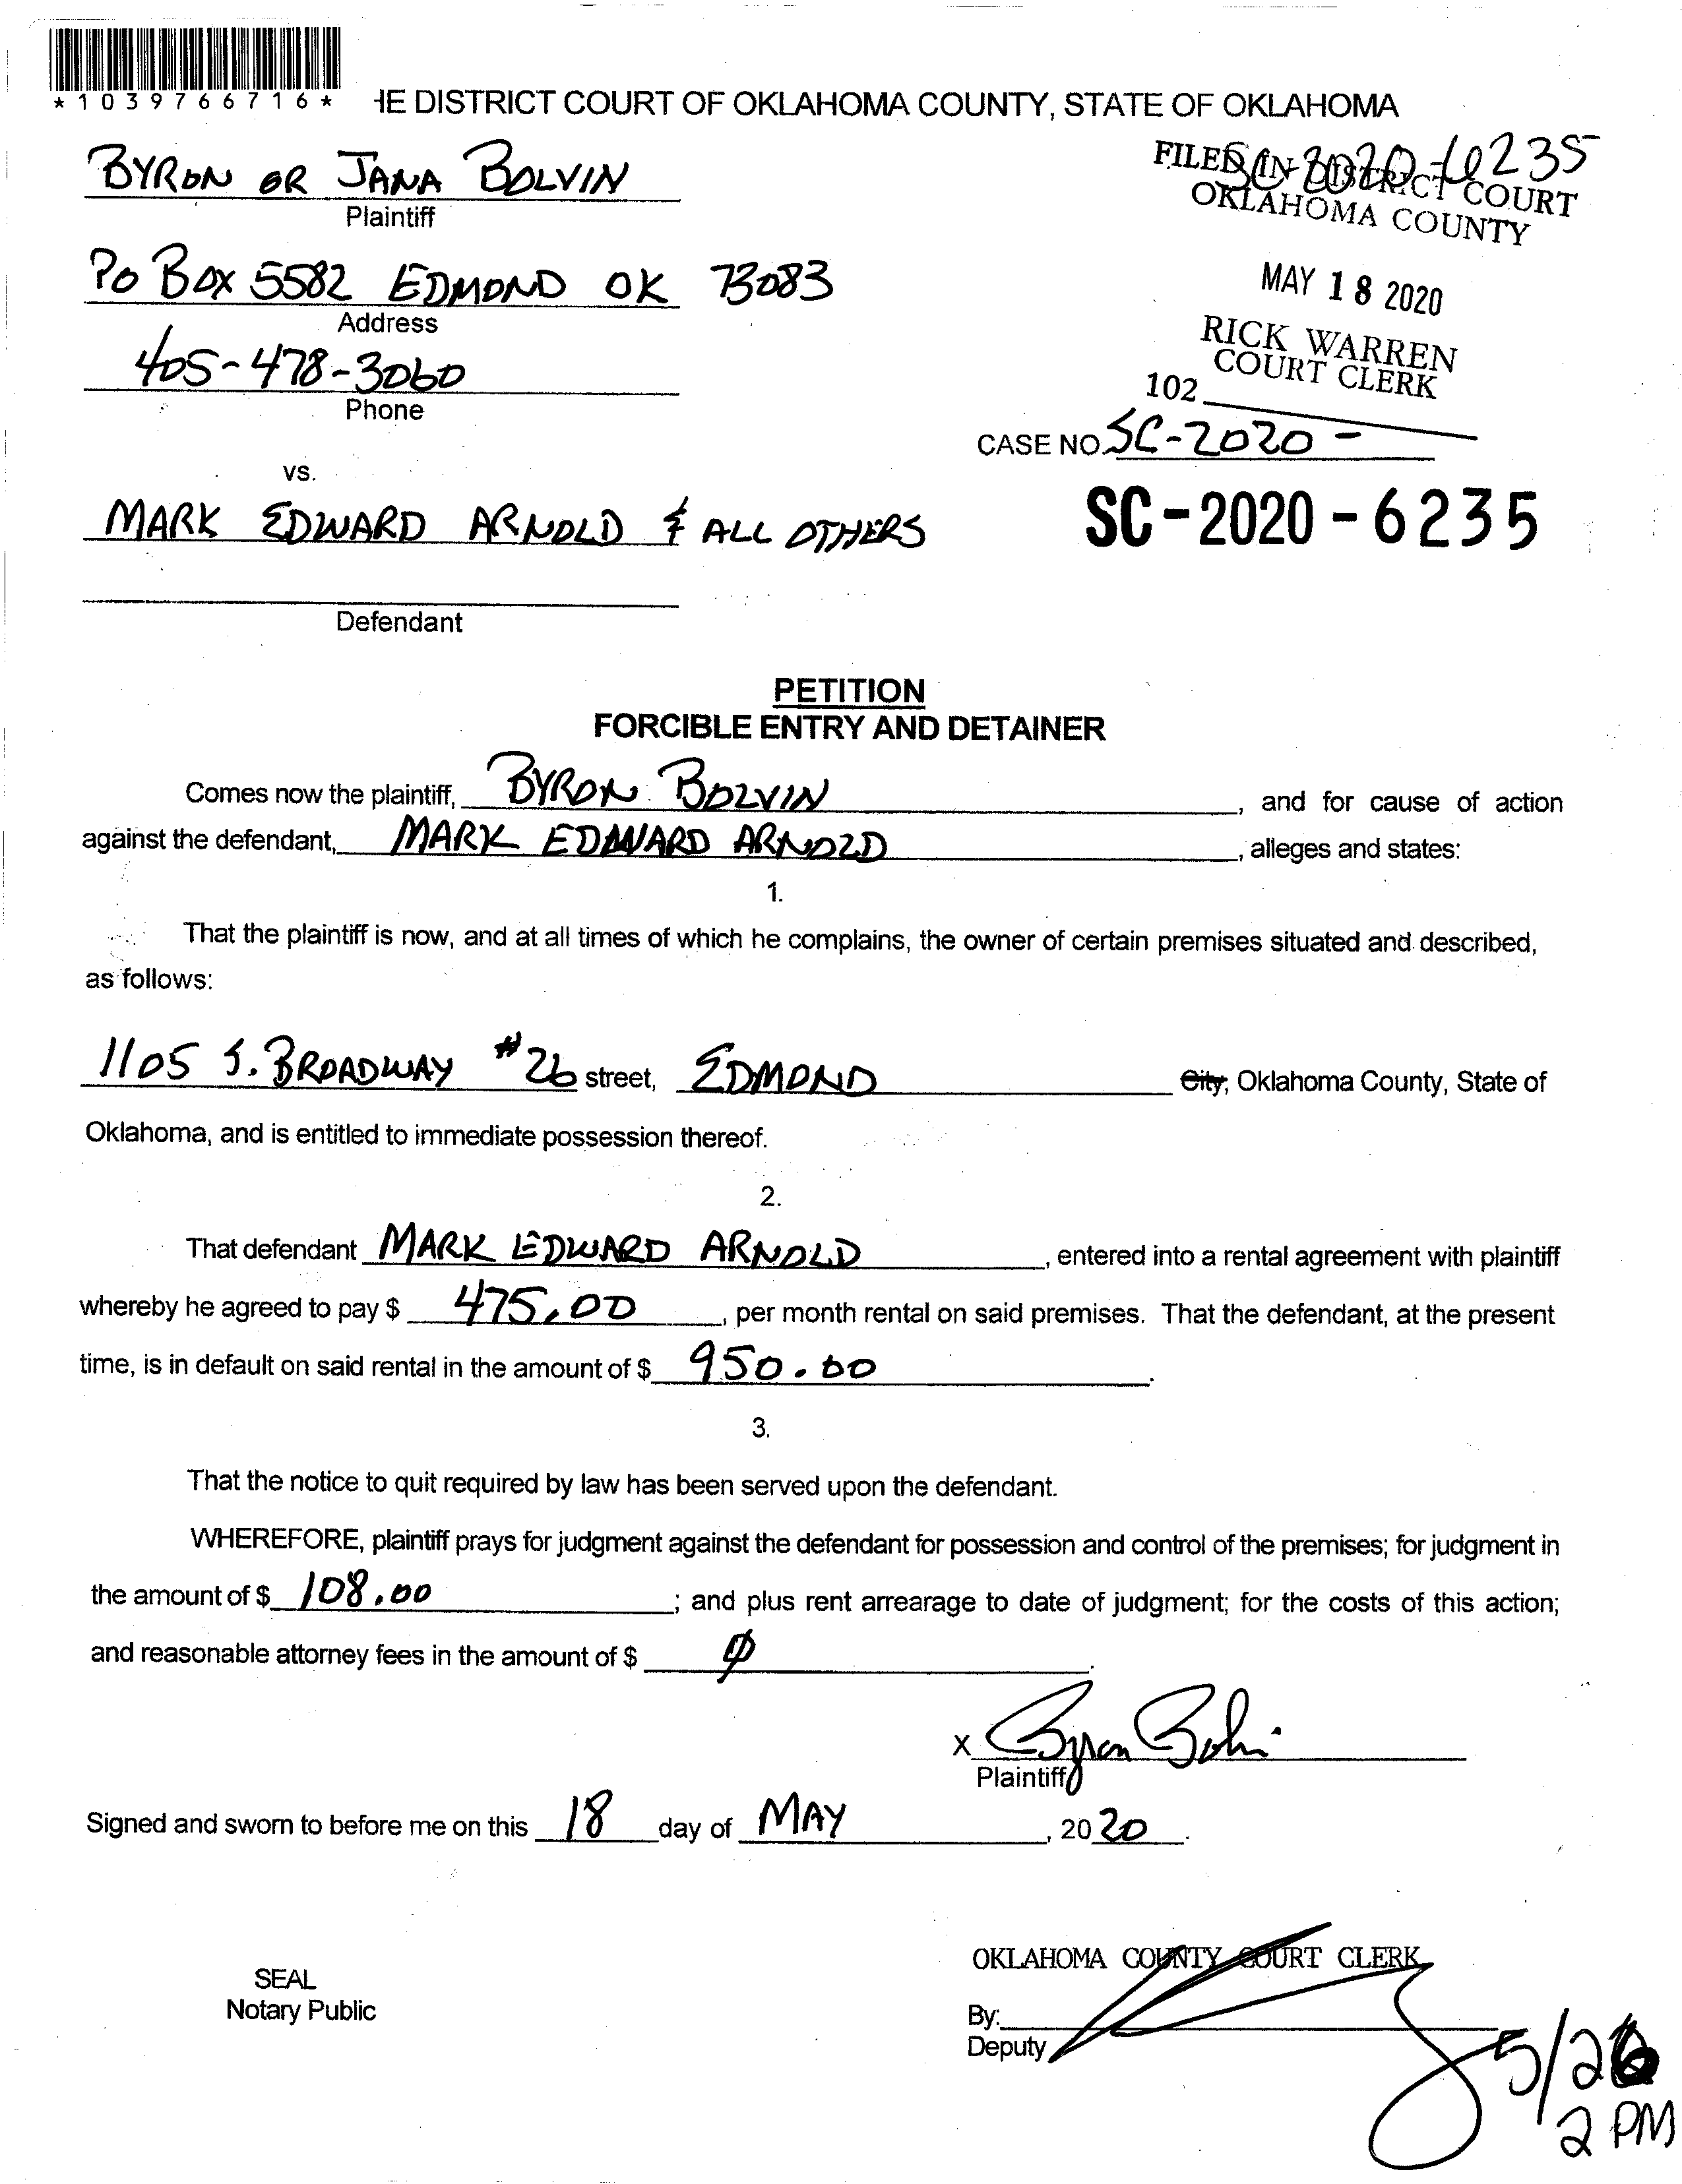 *1039766716*
IE DISTRICT COURT OF OKLAHOMA COUNTY, STATE OF OKLAHOMA
BYRON OR JANA BOLVIN
Plaintiff
SC-2020-6235
FILED IN DISTRICT COURT
OKLAHOMA COUNTY
PO BOX 5582 EDMOND OK 73083
Address
MAY 18 2020
405-478-3060
Phone
RICK WARREN
COURT CLERK
102
CASE NO. SC-2020-
vs.
MARK EDWARD ARNOLD & ALL OTHERS
SC-2020-6235
Defendant
PETITION
FORCIBLE ENTRY AND DETAINER
Comes now the plaintiff, BYRON BOLVIN, and for cause of action
against the defendant, MARK EDWARD ARNOLD, alleges and states:
1.
That the plaintiff is now, and at all times of which he complains, the owner of certain premises situated and described,
as follows:
1105 S. BROADWAY #26 street, EDMOND City, Oklahoma County, State of
Oklahoma, and is entitled to immediate possession thereof.
2.
That defendant MARK EDWARD ARNOLD, entered into a rental agreement with plaintiff
whereby he agreed to pay $ 475.00, per month rental on said premises. That the defendant, at the present
time, is in default on said rental in the amount of $ 950.00.
3.
That the notice to quit required by law has been served upon the defendant.
WHEREFORE, plaintiff prays for judgment against the defendant for possession and control of the premises; for judgment in
the amount of $ 108.00; and plus rent arrearage to date of judgment; for the costs of this action;
and reasonable attorney fees in the amount of $ ∅.
X Byron Bolvin
Plaintiff
Signed and sworn to before me on this 18 day of MAY, 2020.
OKLAHOMA COUNTY COURT CLERK
SEAL
Notary Public
By:
Deputy
5/26
2 PM